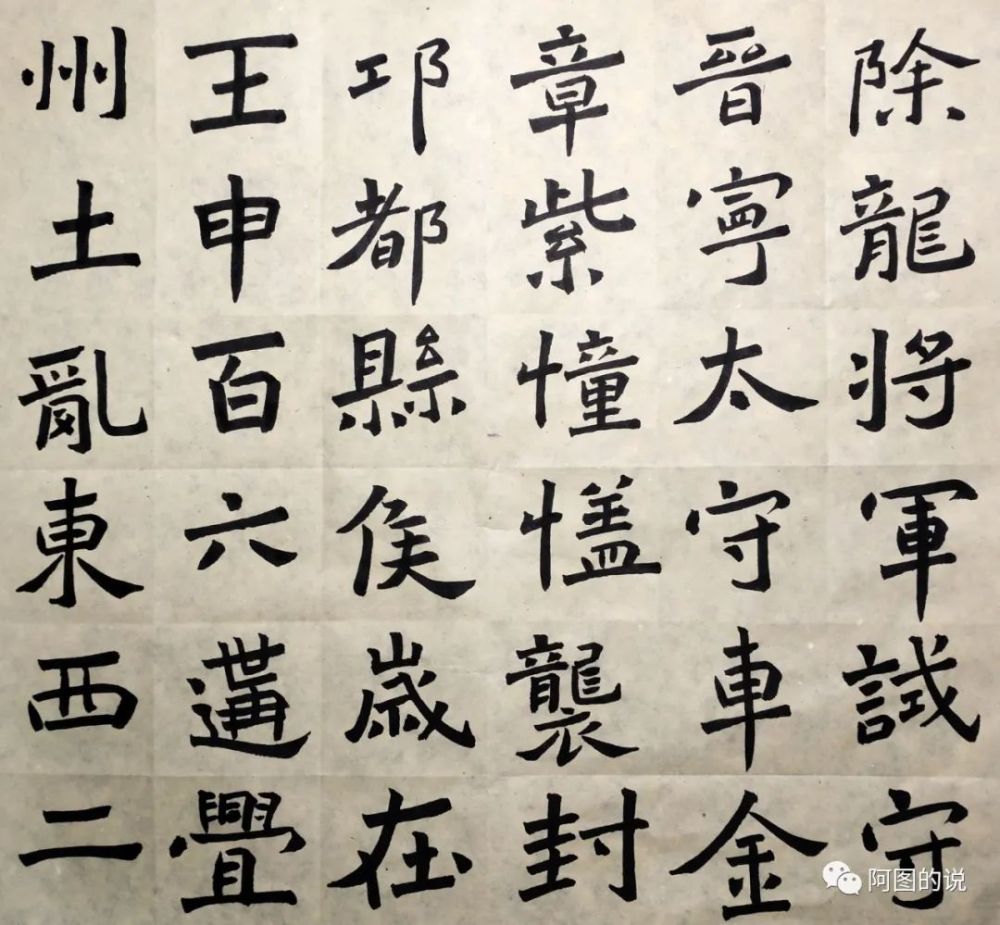 除龍将軍試守
晉寧太守車金
章紫憧襲封
邛都縣侯歲在
王申百六遘舋
州土亂東西二
阿图的说